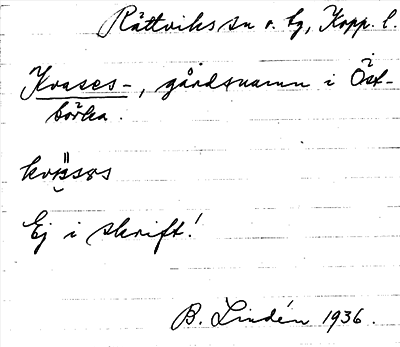 Rättviks sn o. tg, Kopp. l.
Krases-, gårdsnamn i Öst-
börka.
Ej i skrift!
B. Lindén 1936.